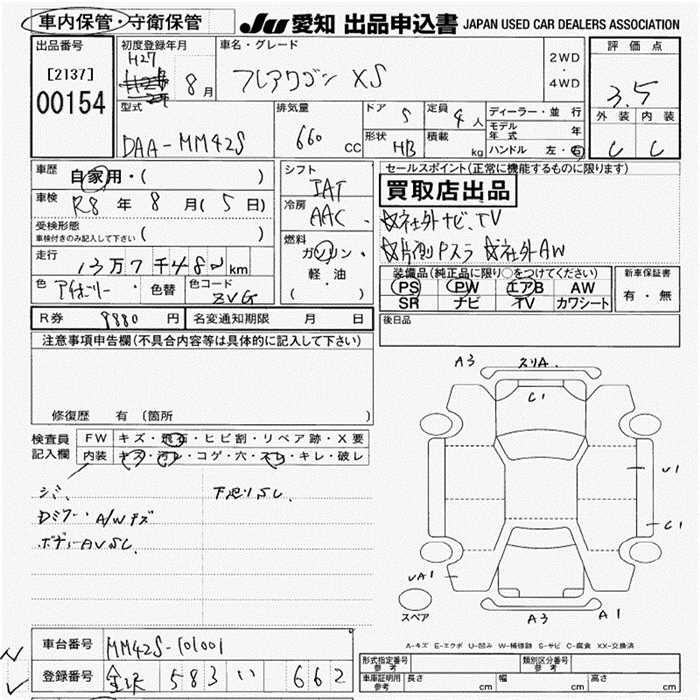 車内保管・守衛保管
JU 愛知 出品申込書 JAPAN USED CAR DEALERS ASSOCIATION
出品番号
[2137]
00154
初度登録年月
H27
8 月
車名・グレード
フレアワゴン XS
2WD
・
4WD
評価点
3.5
外装 内装
C C
型式
DAA-MM42S
排気量
660 CC
ドア 5
形状 HB
定員 4 人
積載 kg
ディーラー・並行
モデル年式 年
ハンドル 左・右
車歴
自家用・( )
車検
R8 年 8 月 ( 5 日)
受検形態
車検付きのみ記入して下さい ( )
走行
13万7千480km
色 アイボリー 色替
色コード ZVG
シフト
IAT
冷房
AAC
燃料
ガソリン
軽油
( )
セールスポイント(正常に機能するものに限ります)
買取店出品
☆社外ナビ、TV
☆片側Pスラ ☆社外AW
装備品(純正品に限り○をつけてください)
PS PW エアB AW
SR ナビ TV カワシート
新車保証書
有・無
R券 9880 円
名変通知期限 月 日
後日品
注意事項申告欄(不具合内容等は具体的に記入して下さい)
修復歴 有 (箇所 )
検査員
記入欄
FW キズ・飛石・ヒビ割・リペア跡・X要
内装 キズ・汚レ・コゲ・穴・スレ・キレ・破レ
シミ、
Dミラー・A/Wキズ
ボディーAUSC.
下廻りSC.
A3 スリA.
C1
U1
C1
UA1
スペア
A3 A1
A-キズ E-エクボ U-凹み W-補修跡 S-サビ C-腐食 XX-交換済
車台番号 MM42S-101001
登録番号 金沢 583 い 662
形式指定番号 参考
類別区分番号 参考
車庫証明用 参考
長さ cm 幅 cm 高さ cm